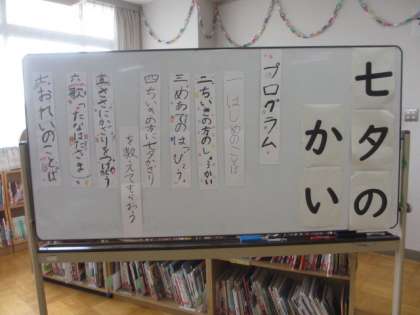 七夕の
かい
プログラム
一 はじめのことば
二 ちいきの方のしょうかい
三 めあてのはっぴょう
四 ちいきの方に七夕かざり
を教えてもらおう
五 ささにかざりをつけよう
六 歌「たなばたさま」
七 おれいのことば